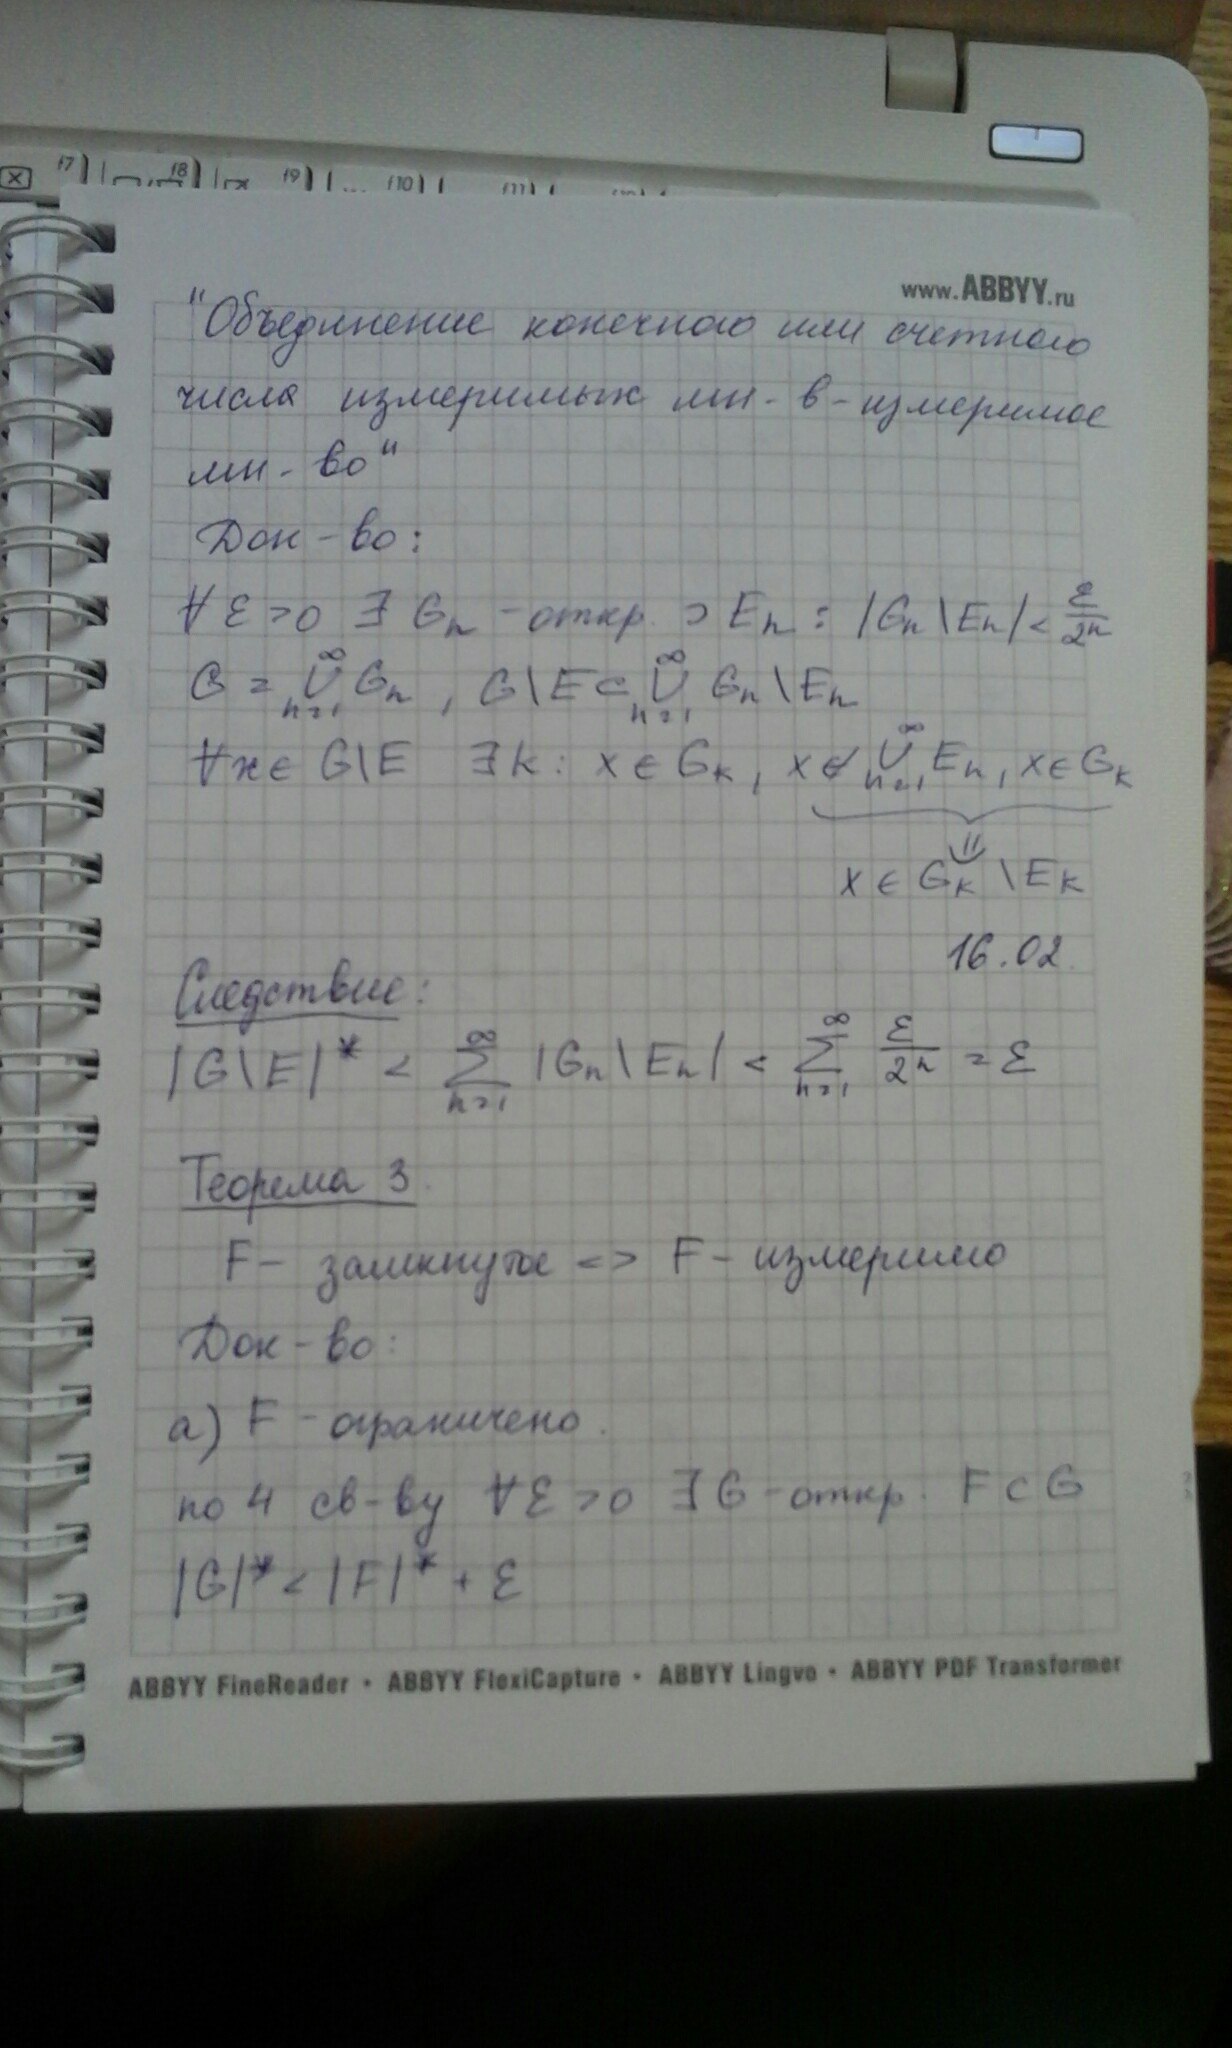 f7 f8 f9 f10 f11
www.ABBYY.ru
"Объединение конечного или счетного
числа измеримых мн-в-измеримое
мн-во"
Док-во:
∀ ε > 0 ∃ Gn - откр. ⊃ En : |Gn \ En| < ε/2ⁿ
G = ∞⋃n=1 Gn , G\E ⊂ ∞⋃n=1 Gn \ En
∀x ∈ G\E ∃k : x ∈ Gk , x ∉ ∞⋃n=1 En , x ∈ Gk
⇓
x ∈ Gk \ Ek
16.02.
Следствие:
|G\E|* < ∞∑n=1 |Gn \ En| < ∞∑n=1 ε/2ⁿ = ε
Теорема 3.
F - замкнутое <=> F - измеримо
Док-во:
а) F - ограничено.
по 4 св-ву ∀ε > 0 ∃ G - откр. F ⊂ G
|G|* < |F|* + ε
ABBYY FineReader • ABBYY FlexiCapture • ABBYY Lingvo • ABBYY PDF Transformer